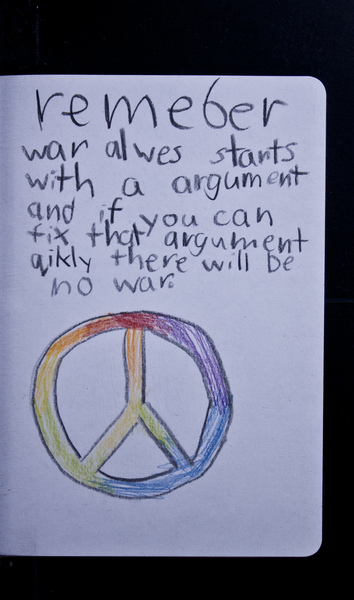 remeber
war alwes starts
with a argument
and if you can
fix that argument
qikly there will be
no war.